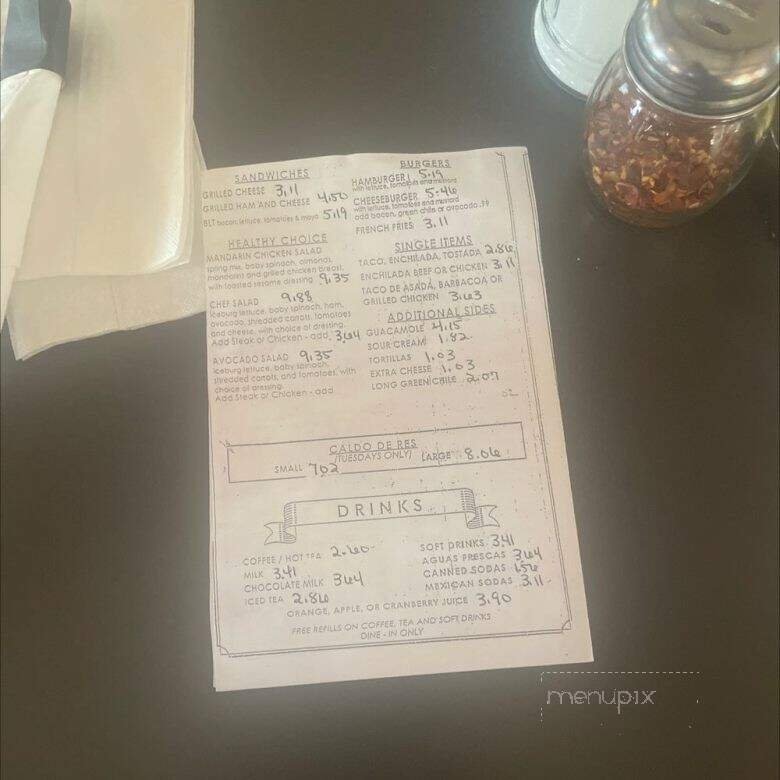 SANDWICHES
GRILLED CHEESE 3.11
GRILLED HAM AND CHEESE 4.50
BLT bacon, lettuce, tomatoes & mayo 5.19
HEALTHY CHOICE
MANDARIN CHICKEN SALAD
spring mix, baby spinach, almonds,
mandarins and grilled chicken breast,
with toasted sesame dressing 9.35
CHEF SALAD 9.88
iceburg lettuce, baby spinach, ham,
avocado, shredded carrots, tomatoes
and cheese, with choice of dressing.
Add Steak or Chicken - add 3.64
AVOCADO SALAD 9.35
iceburg lettuce, baby spinach,
shredded carrots, and tomatoes, with
choice of dressing.
Add Steak or Chicken - add
BURGERS
HAMBURGER 5.19
with lettuce, tomatoes and mustard
CHEESEBURGER 5.46
with lettuce, tomatoes and mustard
add bacon, green chile or avocado .79
FRENCH FRIES 3.11
SINGLE ITEMS
TACO, ENCHILADA, TOSTADA 2.86
ENCHILADA BEEF OR CHICKEN 3.11
TACO DE ASADA, BARBACOA OR
GRILLED CHICKEN 3.63
ADDITIONAL SIDES
GUACAMOLE 4.15
SOUR CREAM 1.82
TORTILLAS 1.03
EXTRA CHEESE 1.03
LONG GREEN CHILE 2.07
CALDO DE RES
(TUESDAYS ONLY)
SMALL 7.02 LARGE 8.06
DRINKS
COFFEE / HOT TEA 2.60
MILK 3.41
CHOCOLATE MILK 3.64
ICED TEA 2.86
SOFT DRINKS 3.41
AGUAS FRESCAS 3.64
CANNED SODAS 1.56
MEXICAN SODAS 3.11
ORANGE, APPLE, OR CRANBERRY JUICE 3.90
FREE REFILLS ON COFFEE, TEA AND SOFT DRINKS
DINE - IN ONLY
menupix